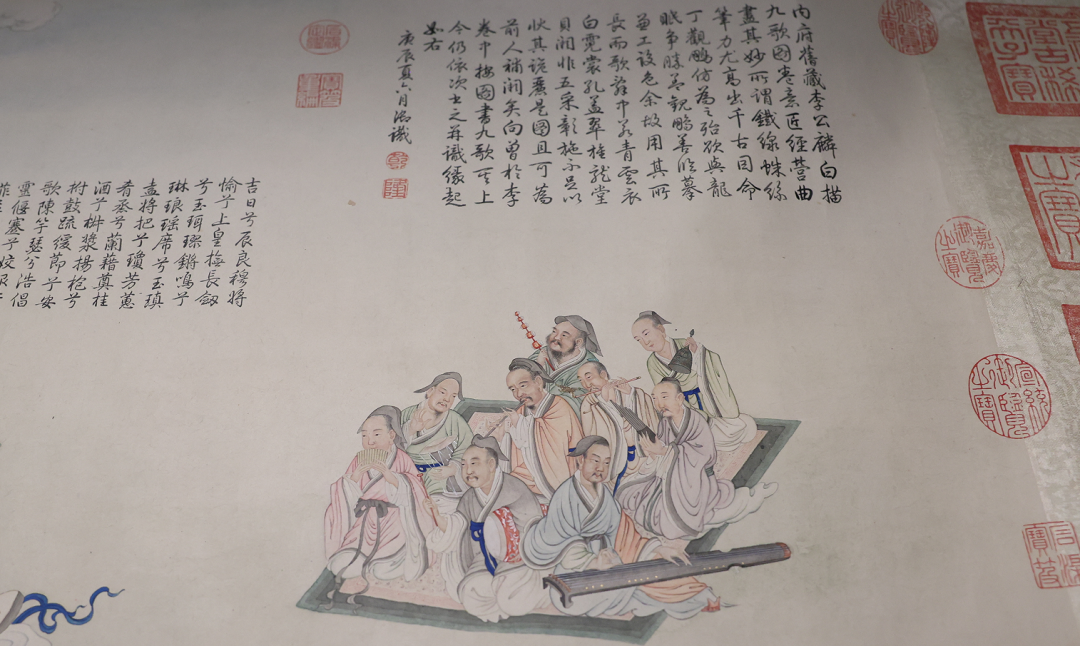 內府舊藏李公麟白描
九歌圖卷意匠經營曲
盡其妙所謂鐵線蛛絲
筆力尤高出千古因命
丁觀鵬仿為之殆欲與龍
眠爭勝並觀鵬善臨摹
兼工設色余故用其所
長而歌辭中若青雲衣
白霓裳孔蓋翠旍龍堂
貝闕非五采彰施不足以
快其詭麗是圖且可為
前人補闕矣向曾於李
卷中按圖書九歌於上
今仍依次書之并識緣起
如右
庚辰夏六月御識
吉日兮辰良穆將
愉兮上皇撫長劔
兮玉珥璆鏘鳴兮
琳琅瑤席兮玉瑱
盍將把兮瓊芳蕙
肴烝兮蘭藉奠桂
酒兮椒漿揚枹兮
拊鼓疏緩節兮安
歌陳竽瑟兮浩倡
靈偃蹇兮姣服
嘉慶御覽之寶
宣統御覽之寶